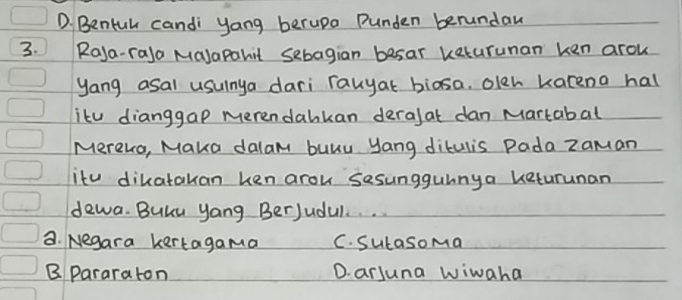 D. Bentuk candi yang berupa Punden berundak
3. Raja-raja Majapahit sebagian besar keturunan ken arok
yang asal usulnya dari rakyat biasa. oleh karena hal
itu dianggap merendahkan derajat dan Martabat
Mereka, Maka dalam buku yang ditulis Pada zaman
itu dikatakan ken arok sesungguhnya keturunan
dewa. Buku yang Berjudul....
a. Negara kertagama C. Sutasoma
B Pararaton D. arjuna wiwaha